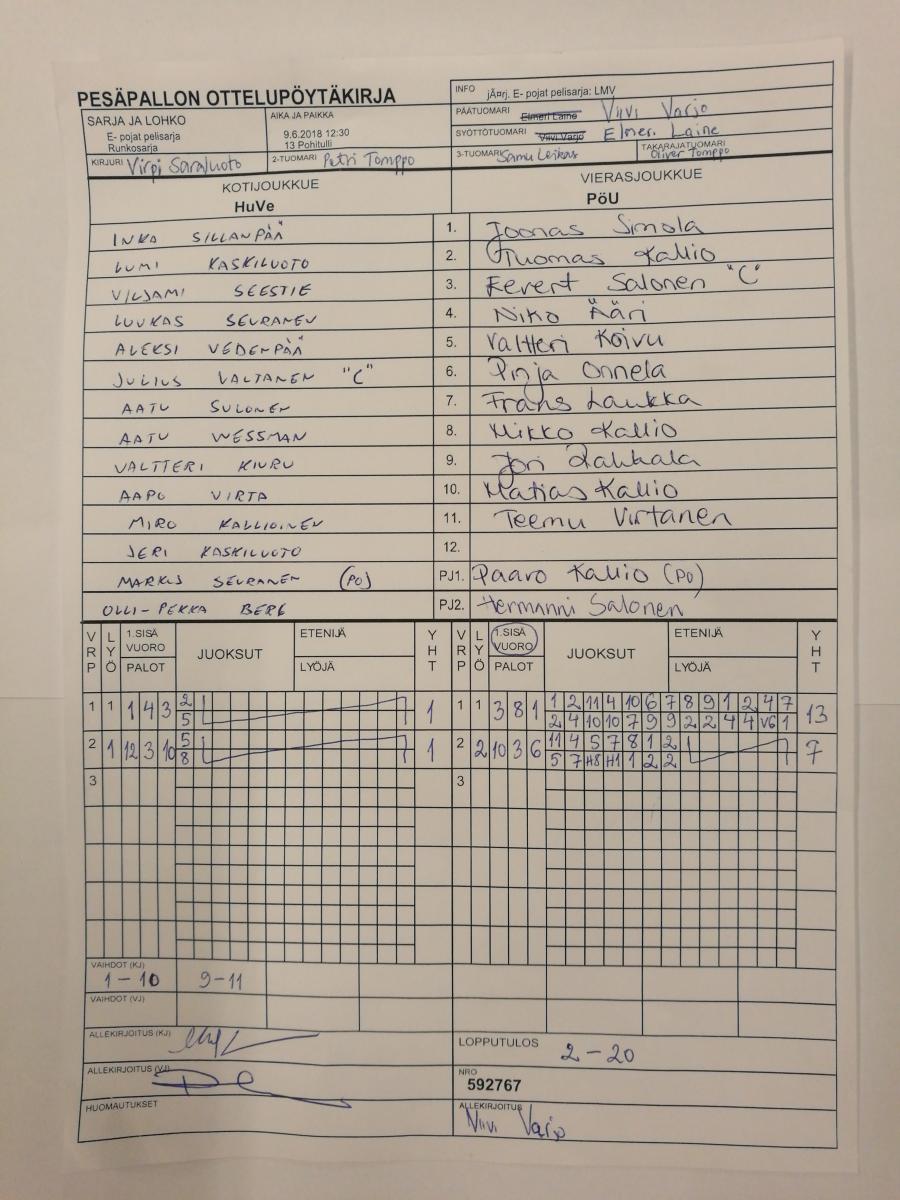 PESÄPALLON OTTELUPÖYTÄKIRJA
INFO jÃ¤rj. E- pojat pelisarja: LMV
SARJA JA LOHKO
E- pojat pelisarja
Runkosarja
AIKA JA PAIKKA
9.6.2018 12:30
13 Pohitulli
PÄÄTUOMARI Elmeri Laine Viivi Varjo
SYÖTTÖTUOMARI Viivi Varjo Elmeri Laine
KIRJURI Virpi Sarajuoto
2-TUOMARI Petri Tomppo
3-TUOMARI Samu Leikas
TAKARAJATUOMARI Oliver Tomppo
KOTIJOUKKUE
HuVe
VIERASJOUKKUE
PöU
INKA SILLANPÄÄ 1. Joonas Simola
LUMI KASKILUOTO 2. Tuomas Kallio
VILJAMI SEESTIE 3. Eevert Salonen "C"
LUUKAS SEURANEN 4. Niko Ääri
ALEKSI VEDENPÄÄ 5. Valtteri Koivu
JULIUS VALTANEN "C" 6. Pinja Onnela
AATU SULONEN 7. Frans Laukka
AATU WESSMAN 8. Mikko Kallio
VALTTERI KIURU 9. Jori Rahkala
AAPO VIRTA 10. Matias Kallio
MIRO KALLIOINEN 11. Teemu Virtanen
JERI KASKILUOTO 12.
MARKUS SEURANEN (PO) PJ1. Paavo Kallio (PO)
OLLI-PEKKA BERG PJ2. Hermanni Salonen
VRP LYÖ 1.SISÄ VUORO PALOT JUOKSUT ETENIJÄ LYÖJÄ YHT
VRP LYÖ 1.SISÄ VUORO PALOT JUOKSUT ETENIJÄ LYÖJÄ YHT
1 1 1 4 3 2 1
5
1 1 3 8 1 1 2 11 4 10 6 7 8 9 1 2 4 7 13
2 4 10 10 7 9 9 2 2 4 4 V6 1
2 1 12 3 10 5 1
8
2 2 10 3 6 11 4 5 7 8 1 2 7
5 7 H8 H1 1 2 2
3 3
VAIHDOT (KJ)
1-10 9-11
VAIHDOT (VJ)
ALLEKIRJOITUS (KJ)
LOPPUTULOS 2-20
ALLEKIRJOITUS (VJ)
NRO
592767
HUOMAUTUKSET
ALLEKIRJOITUS
Viivi Varjo